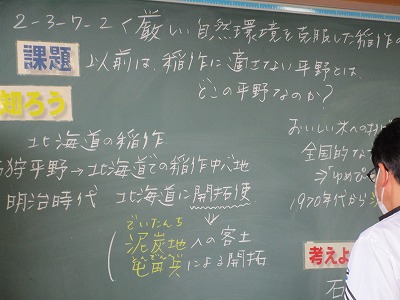 2-3-7-2 く厳しい自然環境を克服した稲作の
課題
以前は、稲作に適さない平野とは、
どこの平野なのか?
知ろう
北海道の稲作
石狩平野→北海道での稲作中心地
明治時代 北海道に開拓使
でいたんち
泥炭地への客土
屯田兵による開拓
おいしい米への
全国的な
→"ゆめぴ
1970年代から
考えよ
石